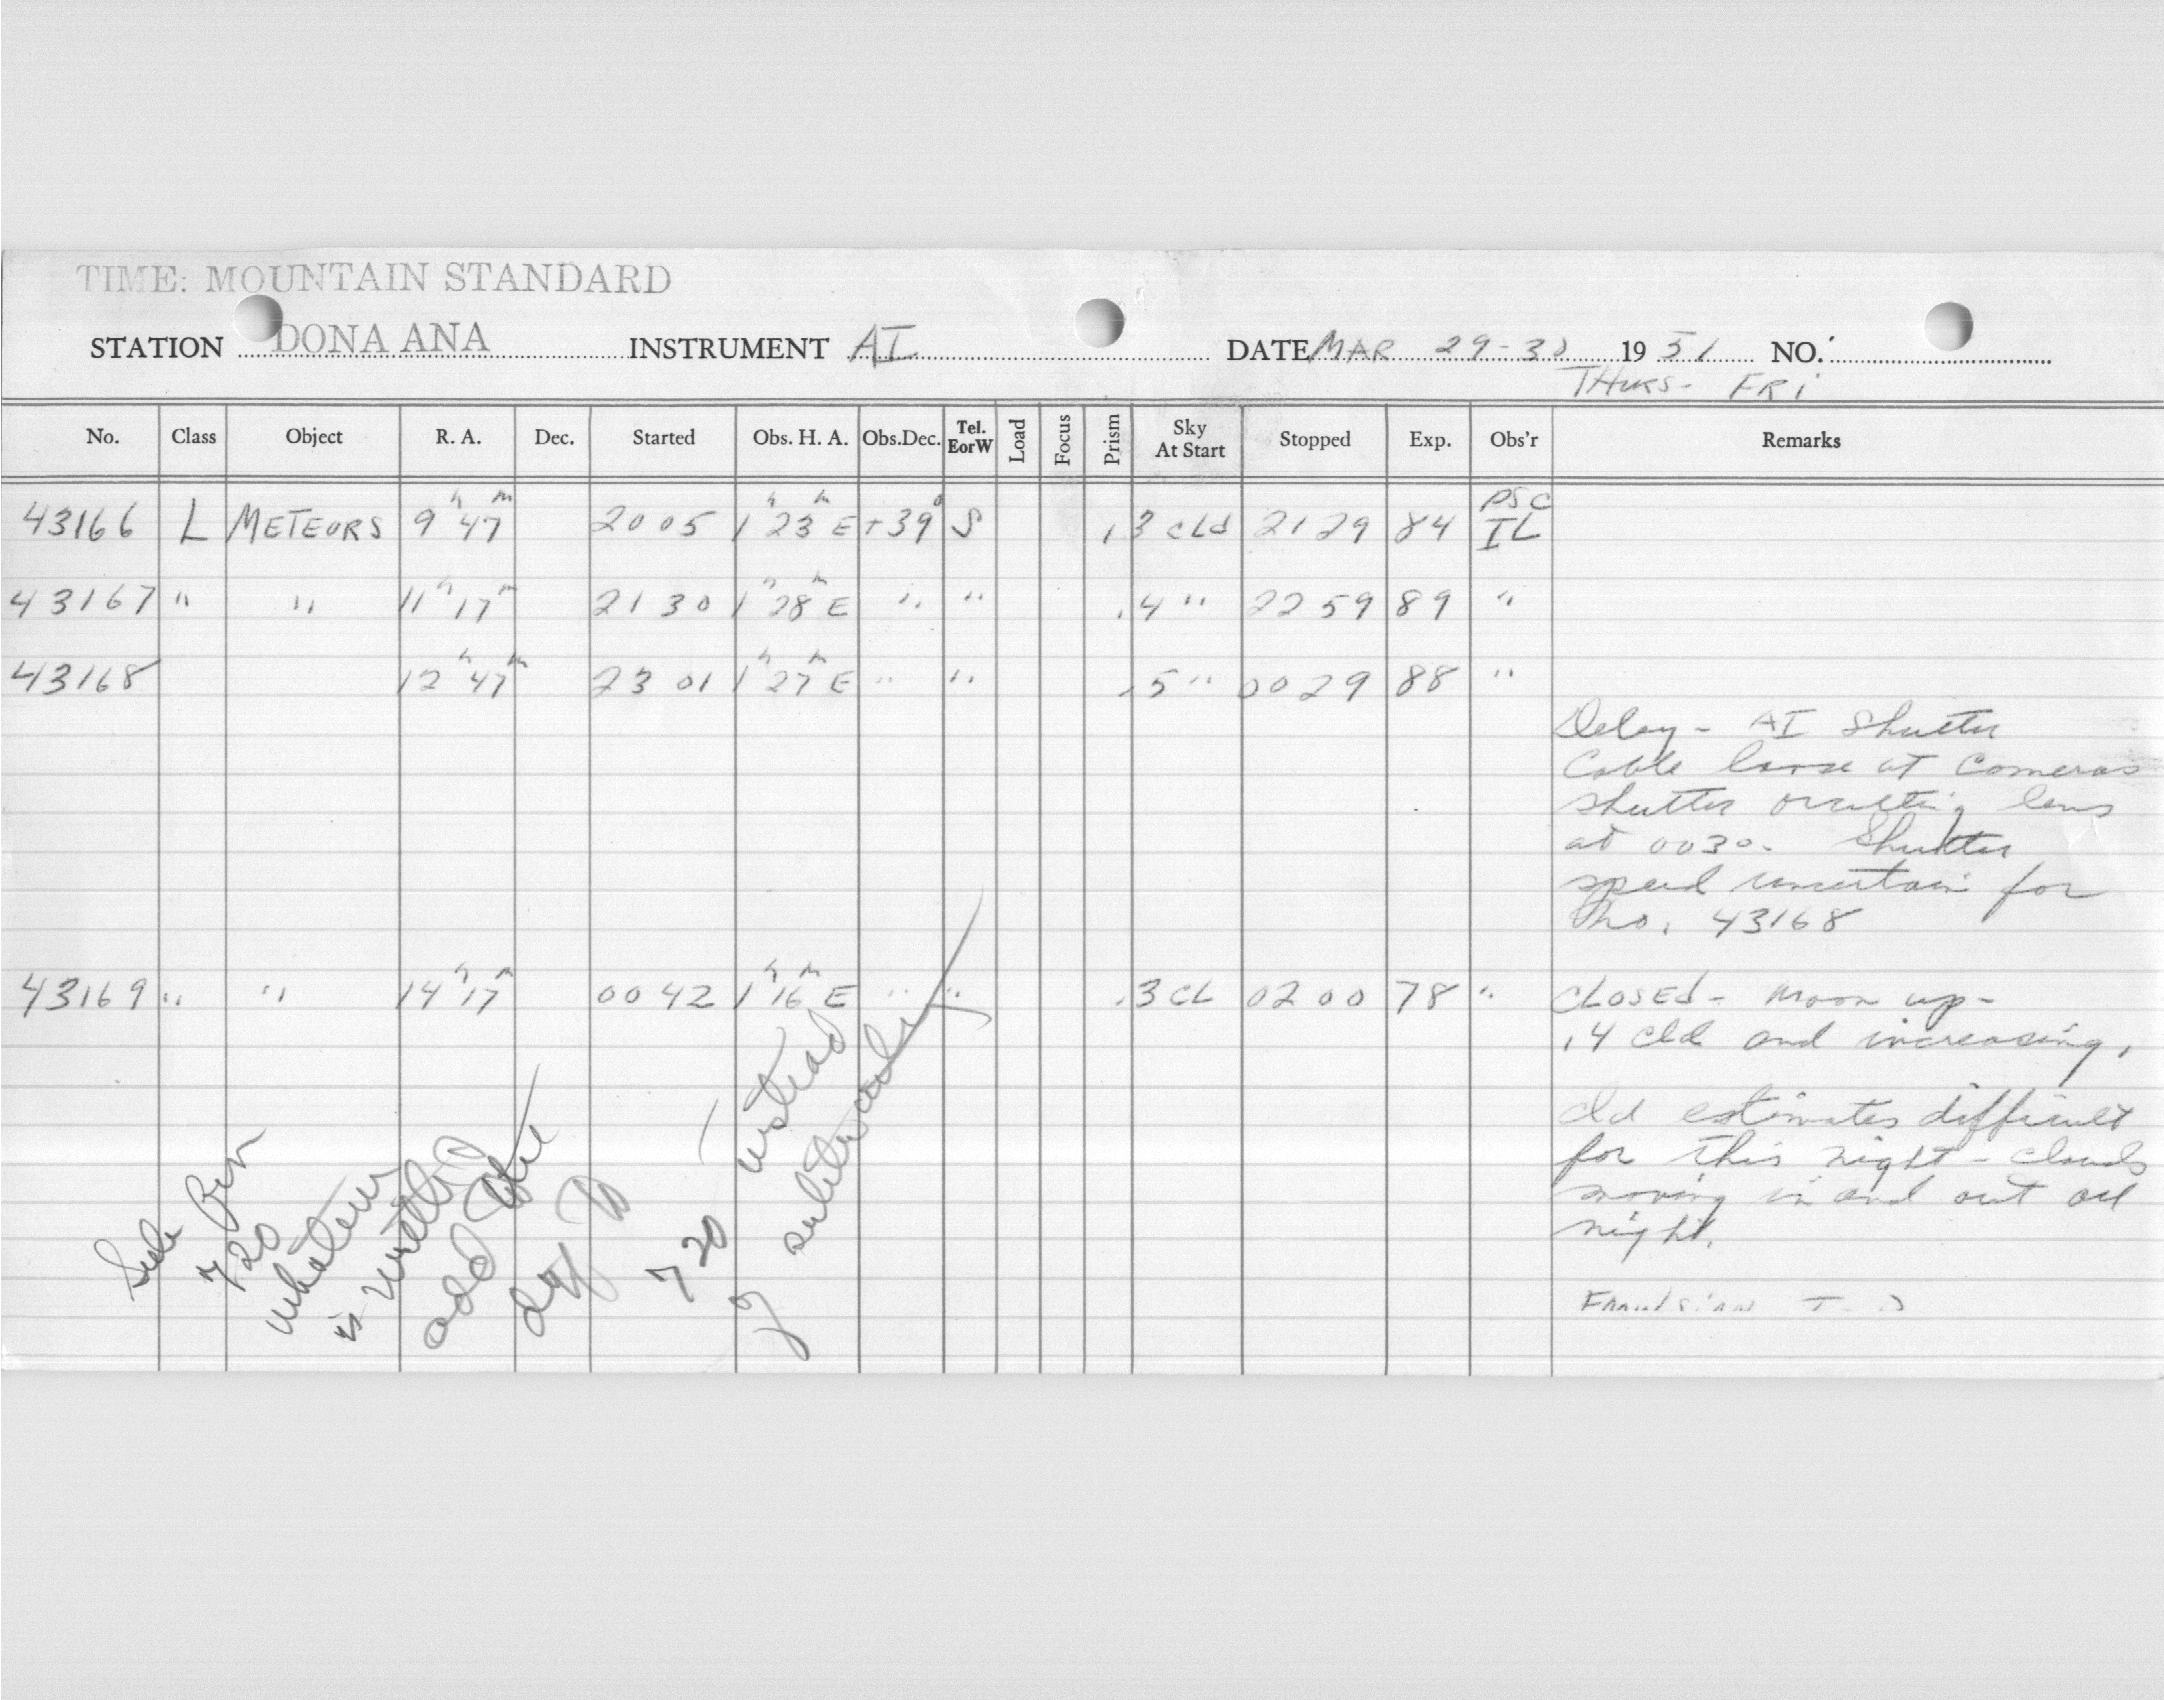 TIME: MOUNTAIN STANDARD
STATION DONA ANA INSTRUMENT AI DATE MAR 29-30 1951 NO.
THURS- FRI
No. Class Object R. A. Dec. Started Obs. H. A. Obs.Dec. Tel. EorW Load Focus Prism Sky At Start Stopped Exp. Obs'r Remarks
43166 L METEORS 9h 47m 2005 1h 23m E +39° S .3 cld 2129 84 PSC IL
43167 " " 11h 17m 2130 1h 28m E " " .4 " 2259 89 "
43168 12h 47m 2301 1h 27m E " " .5 " 0029 88 "
Delay - AI Shutter
Cable loose at Cameras
shutter occulting lens
at 0030. Shutter
speed uncertain for
No. 43168
43169 " " 14h 17m 0042 1h 16m E " " .3 CL 0200 78 " CLOSED - Moon up -
.4 cld and increasing.
cld estimates difficult
for this night - clouds
moving in and out all
night.
720
whatever
is
add
720
instead
of